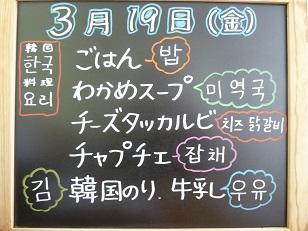 3月19日(金)
韓国
한국
料理
요리
ごはん 밥
わかめスープ 미역국
チーズタッカルビ 치즈 닭갈비
チャプチェ 잡채
김 韓国のり、牛乳 우유